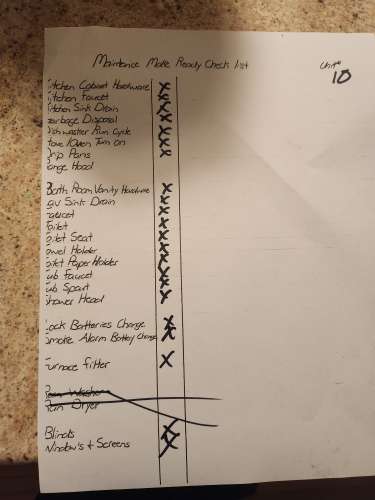 Maintence Make Ready Check list
Unit#
10
Kitchen Cabnet Hardware X
Kitchen Faucet X
Kitchen Sink Drain X
Garbage Disposal X
Dishwasher Run Cycle X
Stove/Oven Turn on X
Drip Pans X
Range Hood
Bath Room Vanity Hardware X
Lav Sink Drain X
Faucet X
Toilet X
Toilet Seat X
Towel Holder X
Toilet Paper Holder X
Tub Faucet X
Tub Spout X
Shower Head X
Lock Batteries Change X
Smoke Alarm Battery Change X
Furnace filter X
Run Washer
Run Dryer
Blinds X
Window's & Screens X